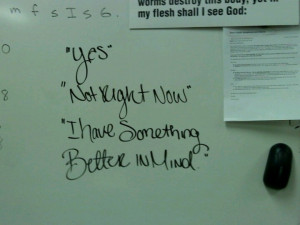 m f s I s 6.
worms destroy this body, yet in
my flesh shall I see God:
0
8
"Yes"
"Not Right Now"
"I have Something
Better in Mind."